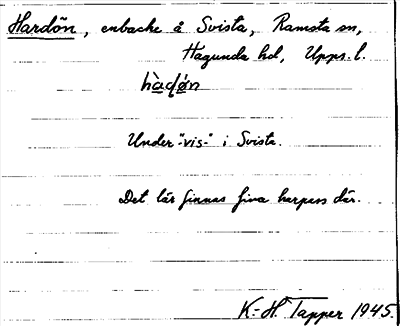 Hardön, enbacke å Svista, Ramsta sn,
Hagunda hd, Upps. l.
hàḍø̀n
Under "-vis-" i Svista.
Det lär finnas fina harpass där.
K.-H. Tapper 1945.